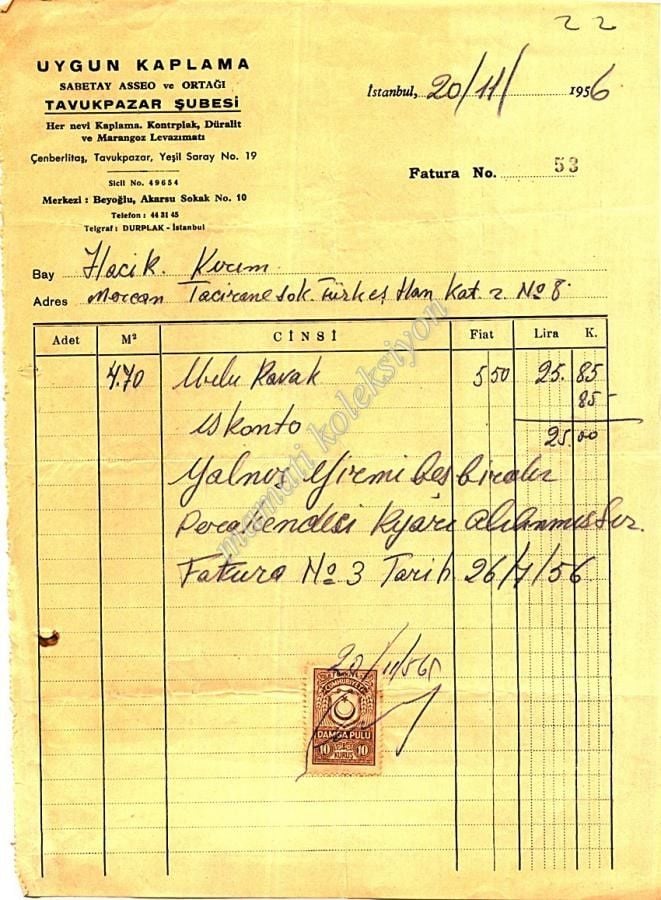 22
UYGUN KAPLAMA
SABETAY ASSEO ve ORTAĞI
TAVUKPAZAR ŞUBESİ
Her nevi Kaplama. Kontrplak, Düralit
ve Marangoz Levazımatı
Çenberlitaş, Tavukpazar, Yeşil Saray No. 19
Sicil No. 49654
Merkezi : Beyoğlu, Akarsu Sokak No. 10
Telefon : 44 31 45
Telgraf : DURPLAK - İstanbul
İstanbul, 20/11/1956
Fatura No. 53
Bay Hacik Kırım
Adres Mercan Tacirane sok. Türkeş Han Kat. 2 No 8.
Adet M² CİNSİ Fiat Lira K.
4.70 Kavak 5 50 25. 85
85-
ıskonto 25.00
Yalnız Yirmi beş liradır
Perakendeci Kyarı alınmıştır.
Fatura No 3 Tarih 26/7/56
20/11/56
CUMHURİYETİ
DAMGA PULU
10 KURUŞ 10
mamati koleksiyon